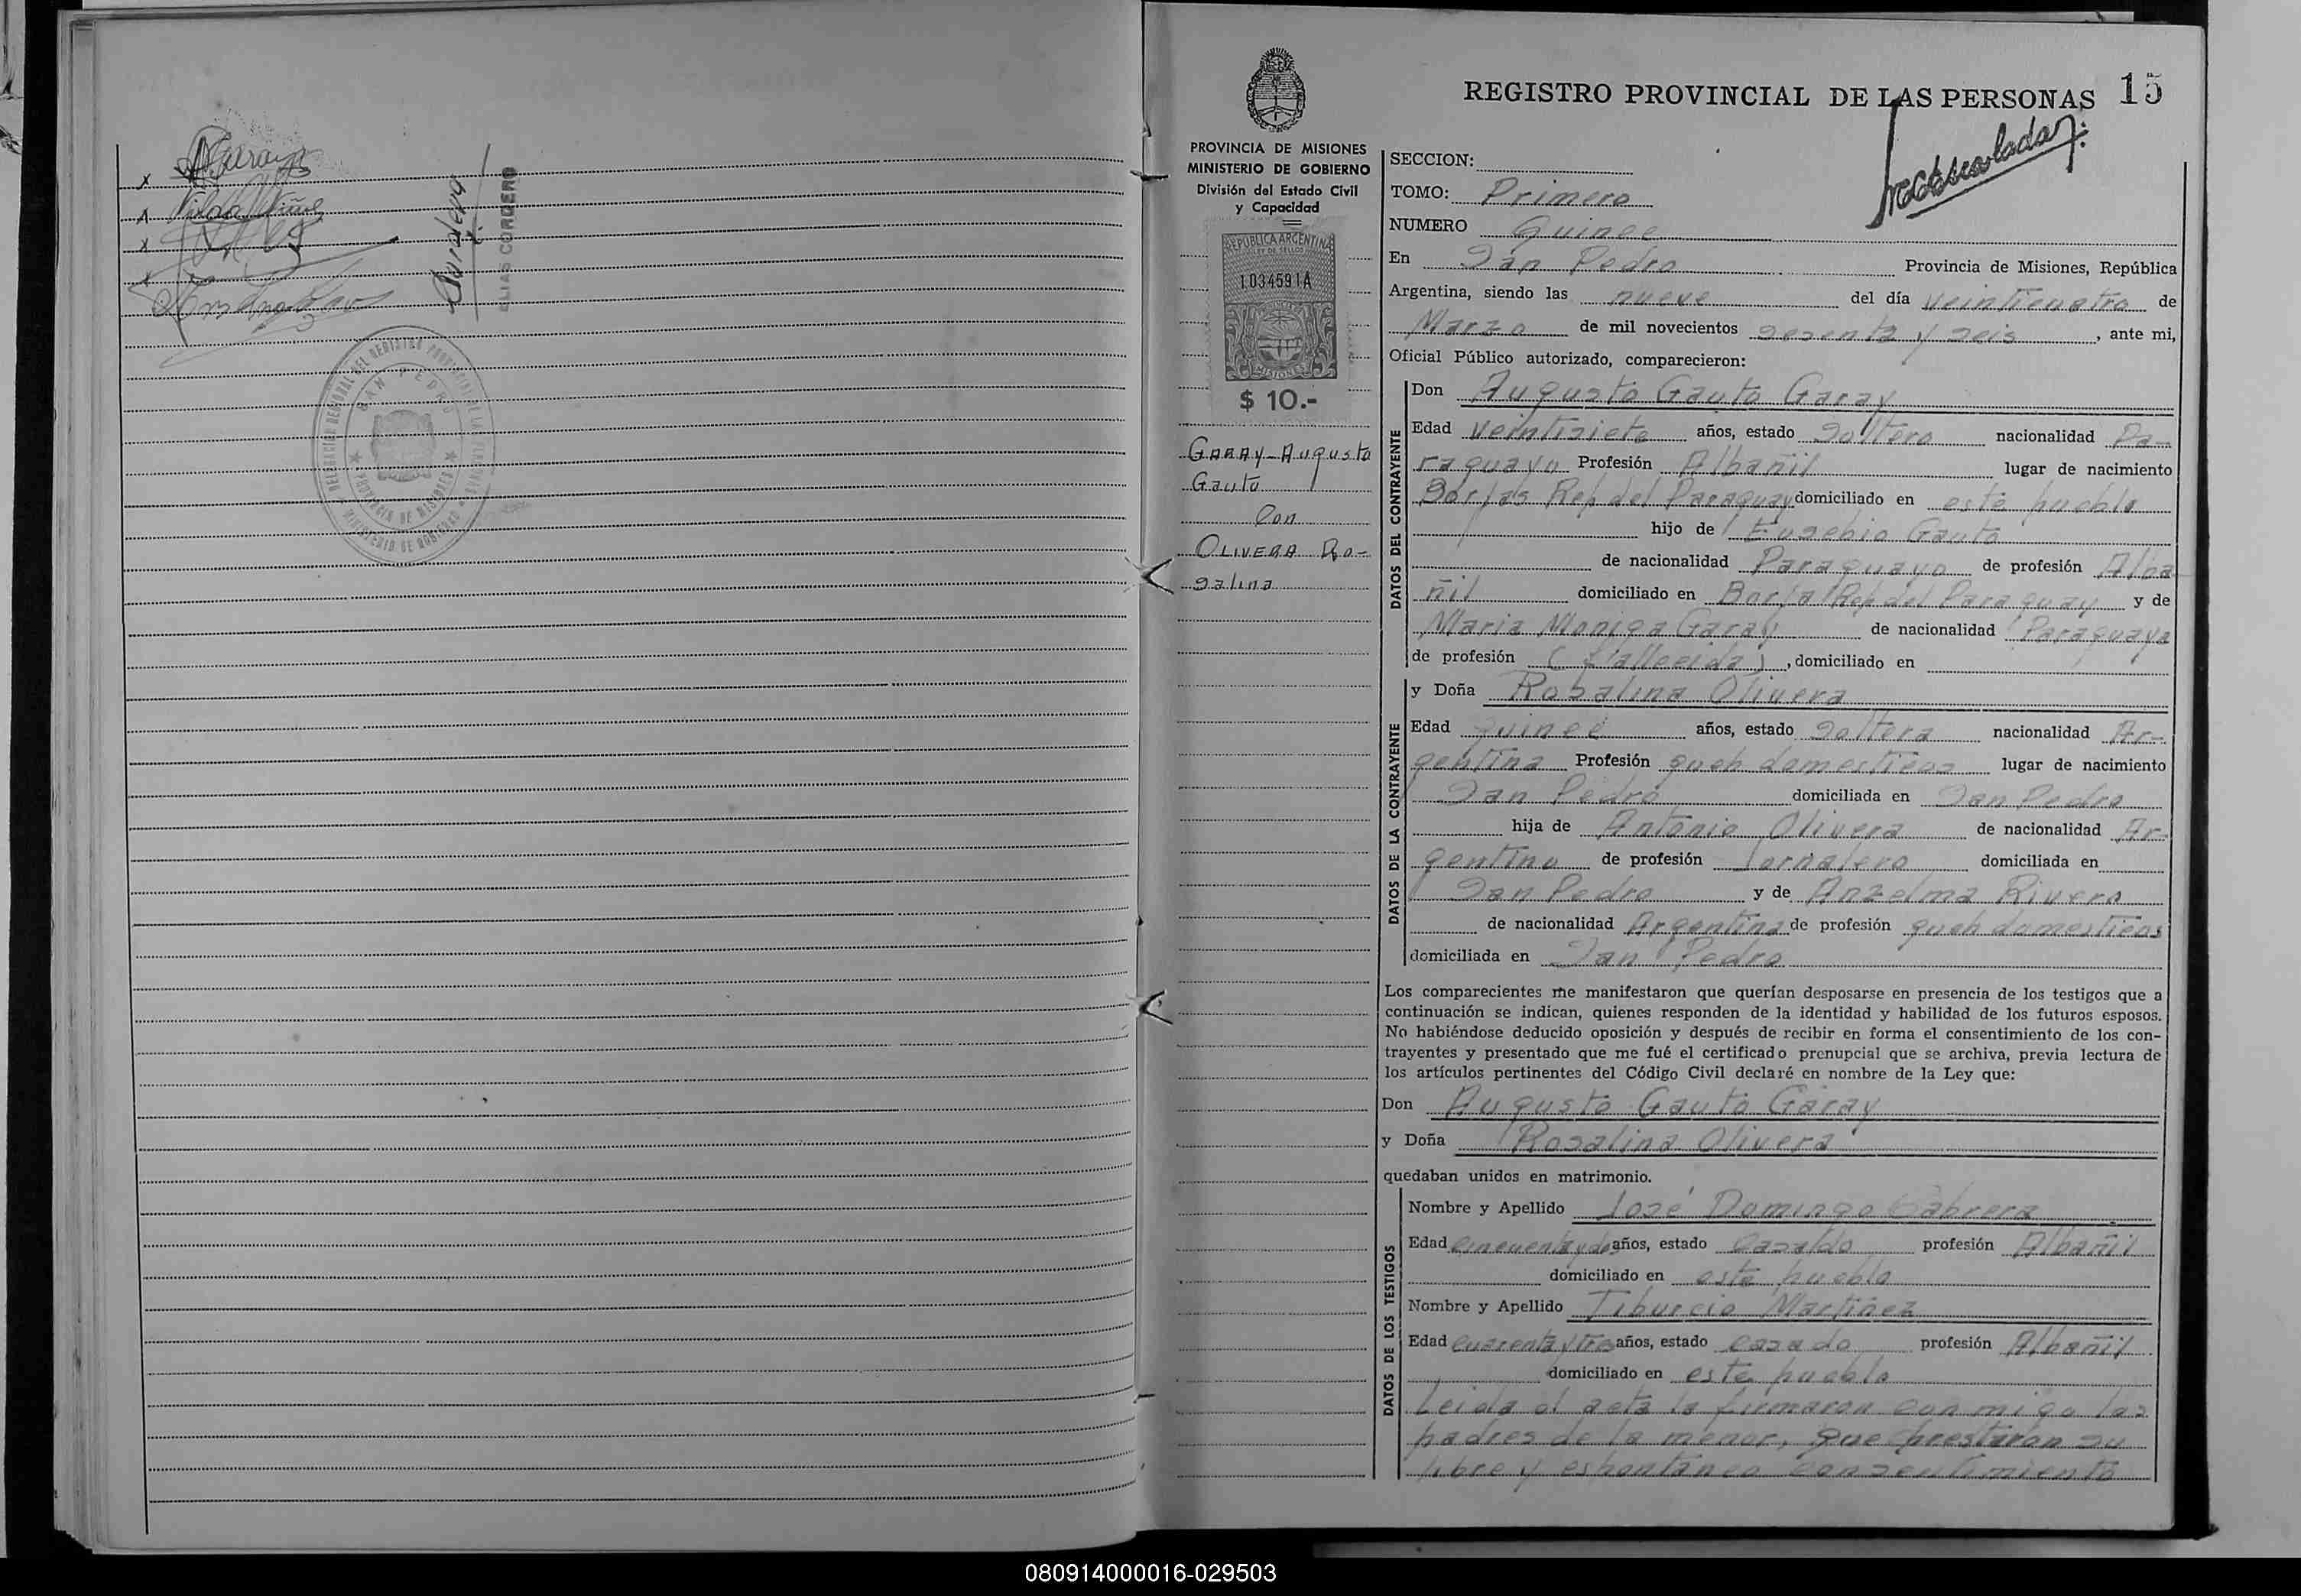 ELIAS CORDERO
DELEGACION REGIONAL DEL REGISTRO PROVINCIAL DE LAS PERSONAS
SAN PEDRO
PROVINCIA DE MISIONES
MINISTERIO DE GOBIERNO
REGISTRO PROVINCIAL DE LAS PERSONAS 15
PROVINCIA DE MISIONES
MINISTERIO DE GOBIERNO
División del Estado Civil
y Capacidad
REPUBLICA ARGENTINA
LEY DE SELLOS
1034591A
MISIONES
$ 10.-
GARAY-Augusto
Gauto
Con
OLIVERA Ro-
salina
SECCION:
TOMO: Primero
NUMERO Quince
En San Pedro Provincia de Misiones, República
Argentina, siendo las nueve del día veinticuatro de
Marzo de mil novecientos sesenta y seis, ante mi,
Oficial Público autorizado, comparecieron:
DATOS DEL CONTRAYENTE
Don Augusto Gauto Garay
Edad veintisiete años, estado soltero nacionalidad Pa-
raguayo Profesión Albañil lugar de nacimiento
Rep del Paraguay domiciliado en este pueblo
hijo de Eugenio Gauto
de nacionalidad Paraguayo de profesión Alba-
ñil domiciliado en Borja Rep del Paraguay y de
Maria Moniga Garay de nacionalidad Paraguaya
de profesión (fallecida), domiciliado en
DATOS DE LA CONTRAYENTE
y Doña Rosalina Olivera
Edad quince años, estado soltera nacionalidad Ar-
gentina Profesión queh domesticos lugar de nacimiento
San Pedro domiciliada en San Pedro
hija de Antonio Olivera de nacionalidad Ar-
gentino de profesión Jornalero domiciliada en
San Pedro y de Anzelma Rivero
de nacionalidad Argentina de profesión queh domesticos
domiciliada en San Pedro
Los comparecientes me manifestaron que querían desposarse en presencia de los testigos que a
continuación se indican, quienes responden de la identidad y habilidad de los futuros esposos.
No habiéndose deducido oposición y después de recibir en forma el consentimiento de los con-
trayentes y presentado que me fué el certificado prenupcial que se archiva, previa lectura de
los artículos pertinentes del Código Civil declaré en nombre de la Ley que:
Don Augusto Gauto Garay
y Doña Rosalina Olivera
quedaban unidos en matrimonio.
DATOS DE LOS TESTIGOS
Nombre y Apellido José Domingo Cabrera
Edad cincuenta y dos años, estado profesión Albañil
domiciliado en este pueblo
Nombre y Apellido Tiburcio Martinez
Edad cuarenta y tres años, estado casado profesión Albañil
domiciliado en este pueblo
Leida el acta la firmaron con migo los
padres de la menor, que prestaron su
libre y espontaneo consentimiento
080914000016-029503